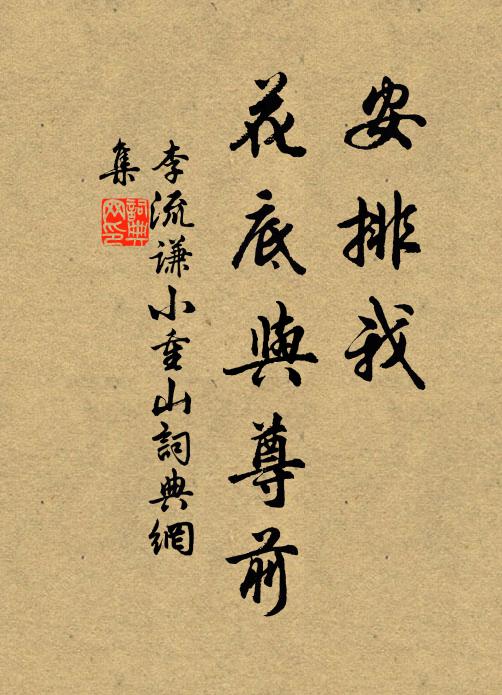 安排我
花底與尊前
李流謙小重山詞典網
集
詞典網印